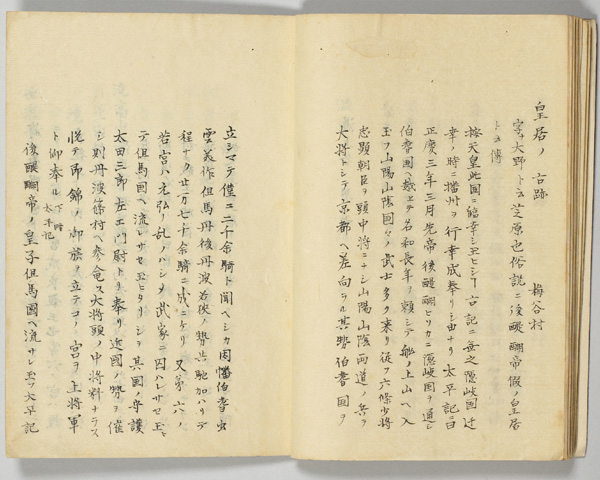 皇居ノ古跡　梅谷村
字大野ト云芝原也俗説ニ後醍醐帝假ノ皇居
ト云傳
按天皇此国ニ臨幸シ玉ヒシヿ古記ニ無之隠岐国ヘ遷
幸ノ時ニ播州ヲ行幸成奉リシ由ナリ太平記ニ曰
正慶二年三月先帝後醍醐ヒソカニ隠岐国ヲ逃レ
伯耆国ヘ越ヱテ名和長年ヲ頼シテ船ノ上山ヘ入
玉フ山陽山陰国々ノ武士多ク来リ従フ六條少将
忠顕朝臣ヲ頭中将ニナシ山陽山陰両道ノ兵ヲ
大将トシテ京都ヘ差向ラル其勢伯耆国ヲ
立シマテ僅ニ二千余騎ト聞ヘシカ因幡伯耆出
雲美作但馬丹後丹波若狭ノ勢共馳加ハリテ
程ナク廿万七千余騎ニ成ニケリ又第六ノ
若宮ハ元弘ノ乱ノハシメ武家ニ囚ハレサセ玉ヒ
テ但馬国ヘ流レサセ玉ヒタリシヲ其国ノ守護
太田三郎左エ門尉トリ奉リ近国ノ勢ヲ催
シ則丹波篠村ヘ参会ス大将頭ノ中将料ナラス
悦テ即錦ノ御旗ヲ立テコノ宮ヲ上将軍
ト仰奉ル下畧太平記
後醍醐帝ノ皇子但馬国ヘ流サレ玉フ太平記